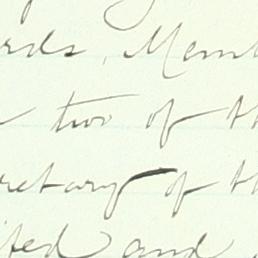 rds, Mem
two of th
retary of th
ited and